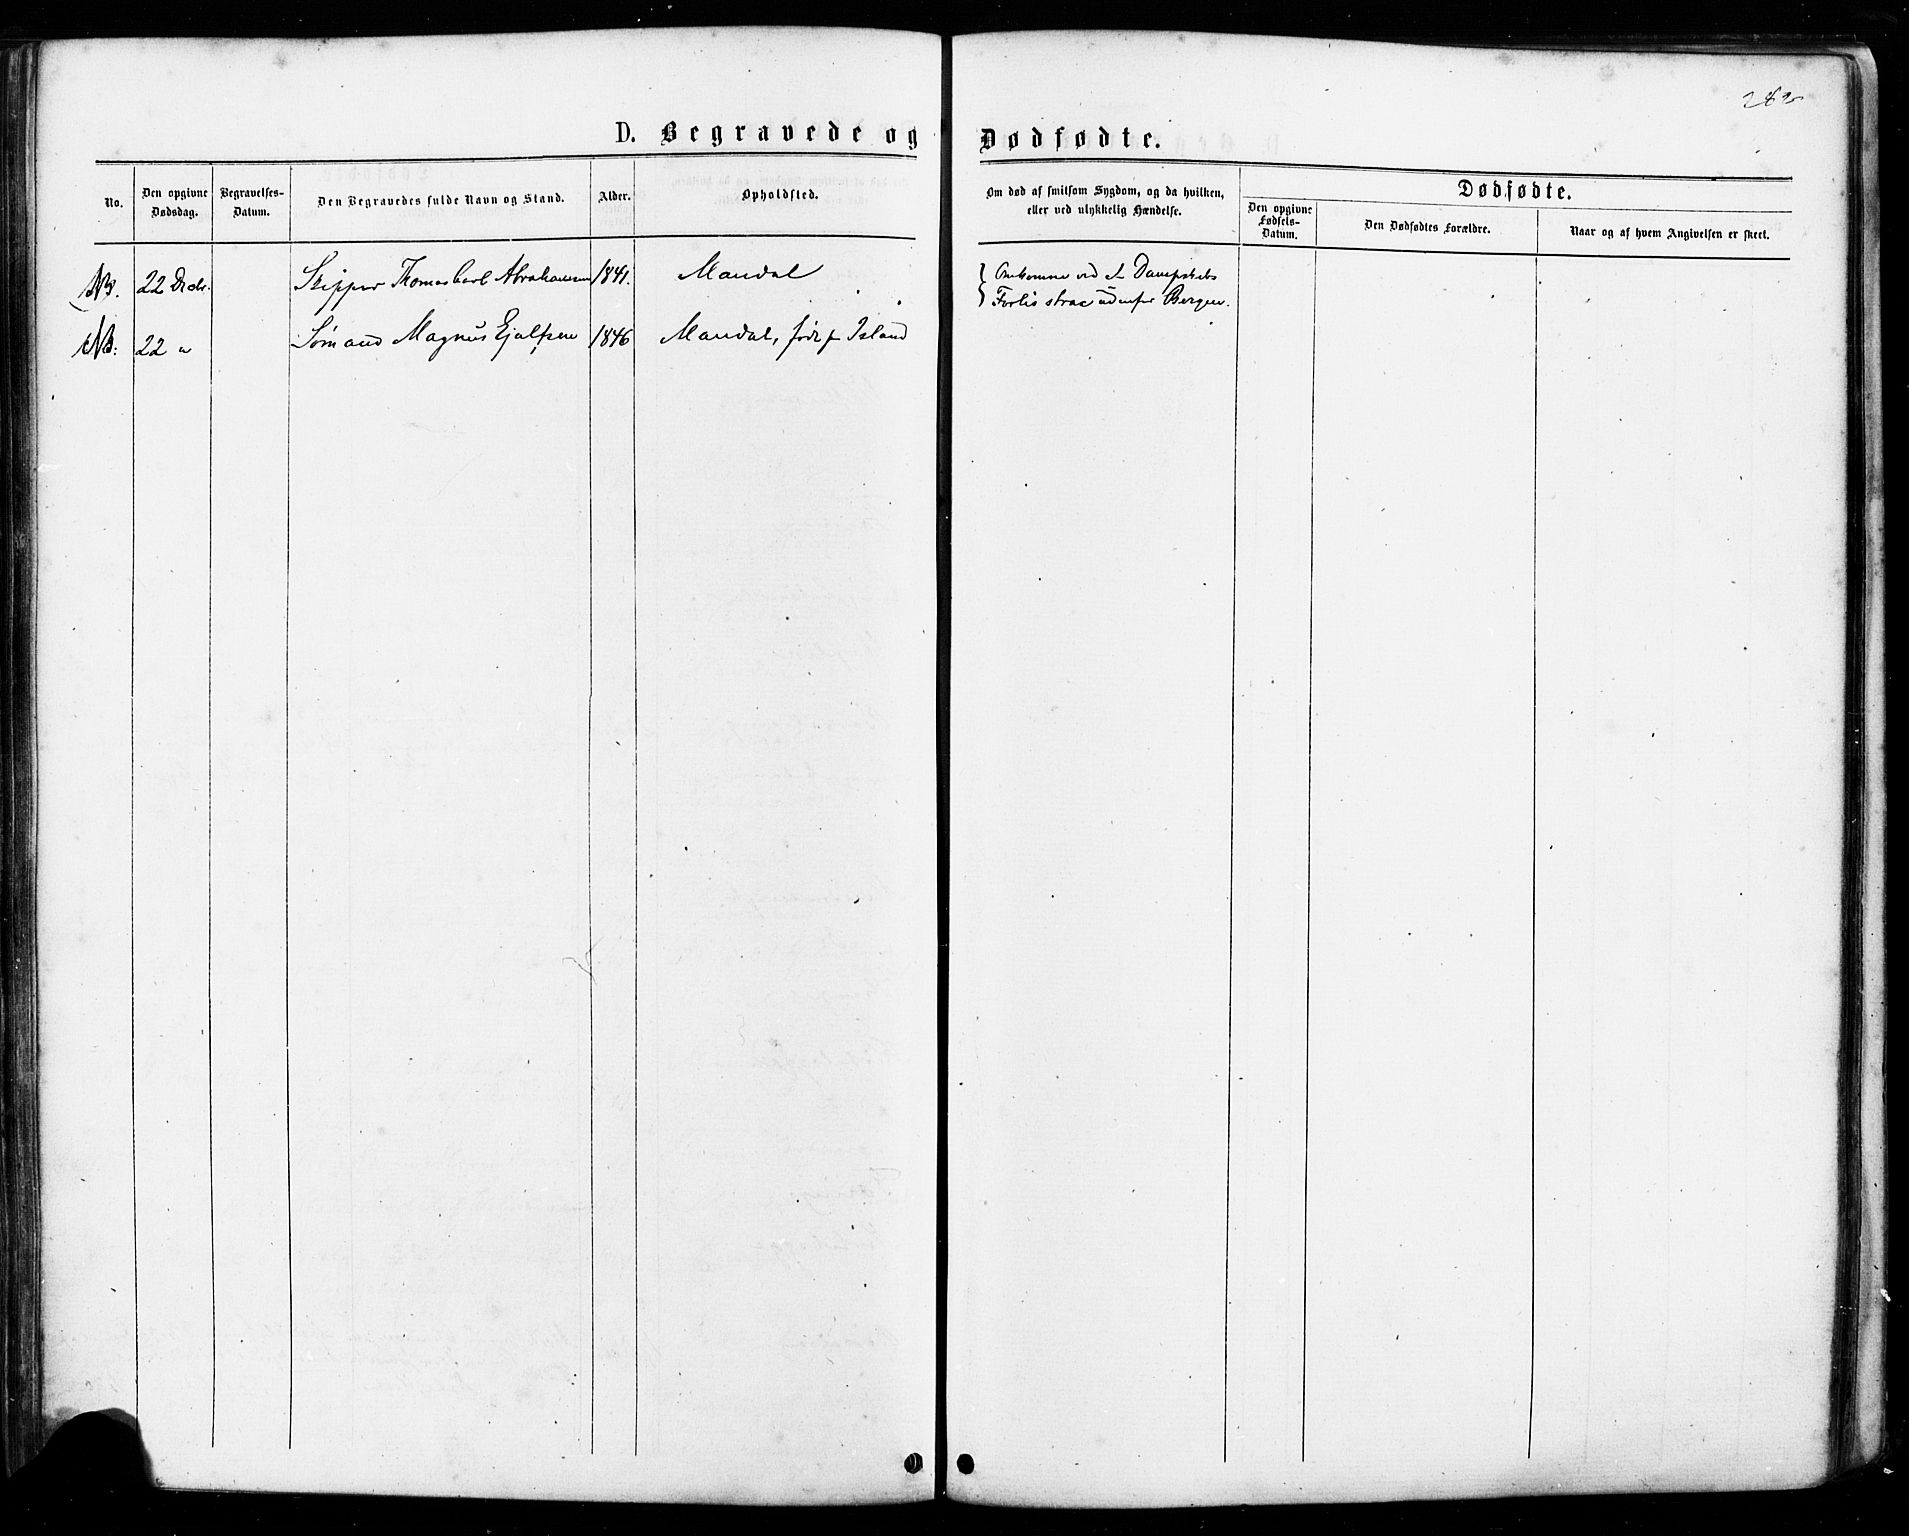 282
D. Begravede og Dødfødte.
No.
Den opgivne Dødsdag.
Begravelses-Datum.
Den Begravedes fulde Navn og Stand.
Alder.
Opholdsted.
Om død af smitsom Sygdom, og da hvilken, eller ved ulykkelig Hændelse.
Dødfødte.
Den opgivne Fødsels-Datum.
Den Dødfødtes Forældre.
Naar og af hvem Angivelsen er skeet.
NB. 22 Decbr. Skipper Thomas Carl Abrahamsen 1841. Mandal
Omkomne ved et Dampskibs
Forlis strax udenfor Bergen.
NB: 22 " Sømand Magnus Ejulfsen 1846 Mandal, født p Island